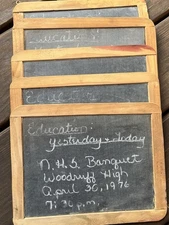 Education:
Education:
Yesterday & Today
N.H.S. Banquet
Woodruff High
April 30, 1976
7:30 p.m.